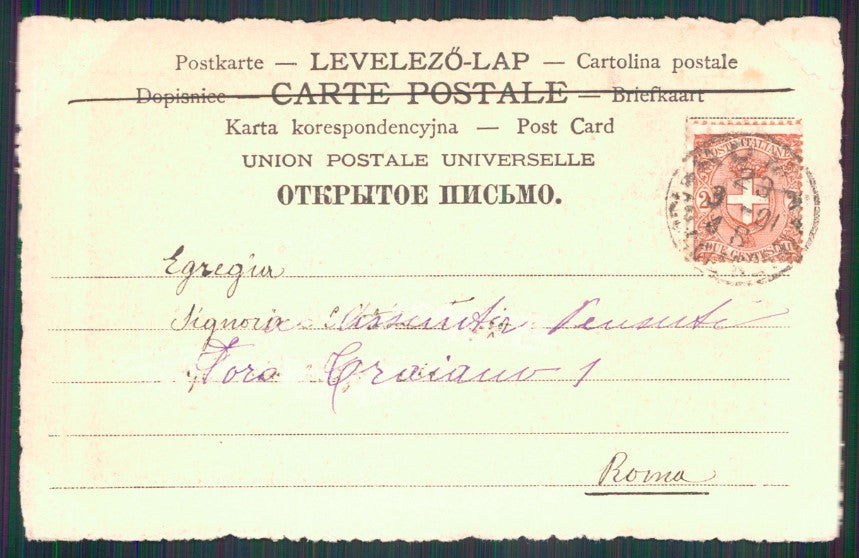 Postkarte — LEVELEZŐ-LAP — Cartolina postale
Dopisnice — CARTE POSTALE — Briefkaart
Karta korespondencyjna — Post Card
UNION POSTALE UNIVERSELLE
ОТКРЫТОЕ ПИСЬМО.
POSTE ITALIANE
2
23
01
8
Egregia
Signora Assunta
Foro Traiano 1
Roma